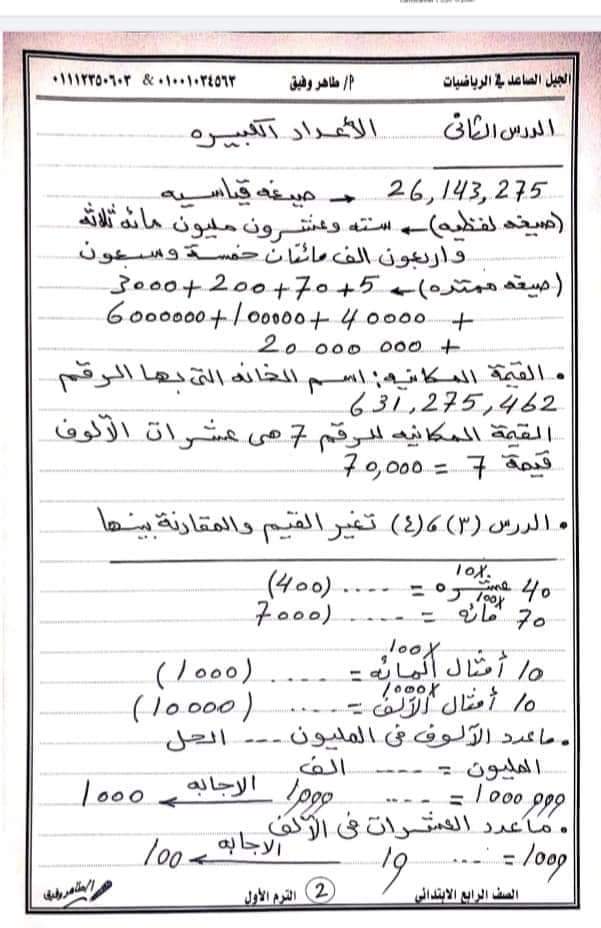 الجيل الصاعد في الرياضيات أ/ طاهر وفيق ٠١٠٠١٠٣٤٥٦٣ & ٠١١١٢٣٥٠٦٠٣
الدرس الثانى الأعداد الكبيره
26,143,275 → صيغه قياسيه
(صيغه لفظيه) ← سته وعشرون مليون مائه ثلاثه
واربعون الف مائتان خمسة وسبعون
(صيغه ممتده) ← 3000+200+70+5
6000000+100000+40000 +
20 000 000 +
• القيمة المكانيه: اسم الخانه التى بها الرقم
631,275,462
القيمة المكانيه للرقم 7 هى عشرات الآلوف
قيمة 7 = 70,000
• الدرس (٣) و (٤) تغير القيم والمقارنة بينها
10x
40 عشره = .... (400)
100x
70 مائه = .... (7000
100x
10 أمثال المائه = .... (1000)
1000x
10 أمثال الآلف = .... (10000)
• ماعدد الآلوف فى المليون ... الحل
المليون = .... الف
1000000 = .... 1000 الاجابه ← 1000
• ماعدد العشرات فى الآلف
1000 = ... 10 الاجابه ← 100
الصف الرابع الابتدائي 2 الترم الأول أ/طاهر وفيق